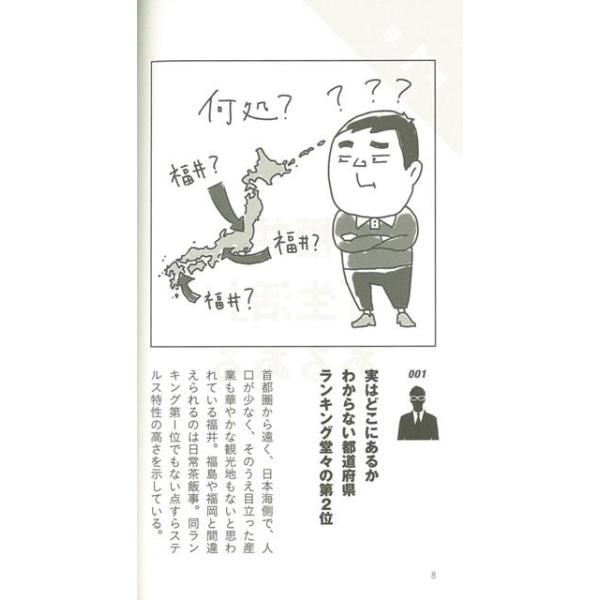 何処?
? ? ?
福井?
福井?
福井?
001
実はどこにあるか
わからない都道府県
ランキング堂々の第2位
首都圏から遠く、日本海側で、人
口が少なく、そのうえ目立った産
業も華やかな観光地もないと思わ
れている福井。福島や福岡と間違
えられるのは日常茶飯事。同ラン
キング第1位でもない点すらステ
ルス特性の高さを示している。
8